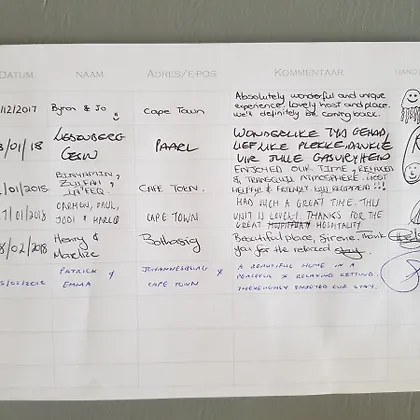 DATUM NAAM ADRES/E-POS KOMMENTAAR
/12/2017 Byron & Jo Cape Town Absolutely wonderful and unique
experience, lovely host and place.
we'll definitely be coming back.
/01/18 LIEBENBERG PAARL WONDERLIKE TYD GEHAD,
GESIN LIEFLIKE PLEKKIE. DANKIE
VIR JULLE GASVRYHEID
/01/2018 BINYAMIN, CAPE TOWN. ENJOYED OUR TIME, RELAXED
& TRANQUIL ATMOSPHERE. HOST
HELPFUL & FRIENDLY. WILL RECOMMEND!!
/01/2018 CARMON, PAUL, CAPE TOWN HAD SUCH A GREAT TIME. THIS
JODI & UNIT IS LOVELY. THANKS FOR THE
GREAT HOSPITALITY
8/02/2018 Henry & Bothasig Beautiful place, Sirene, thank
Marlize you for the relaxed stay.
/02/2018 PATRICK & JOHANNESBURG & A BEAUTIFUL HOME IN A
EMMA CAPE TOWN PEACEFUL & RELAXING SETTING.
THOROUGHLY ENJOYED OUR STAY.